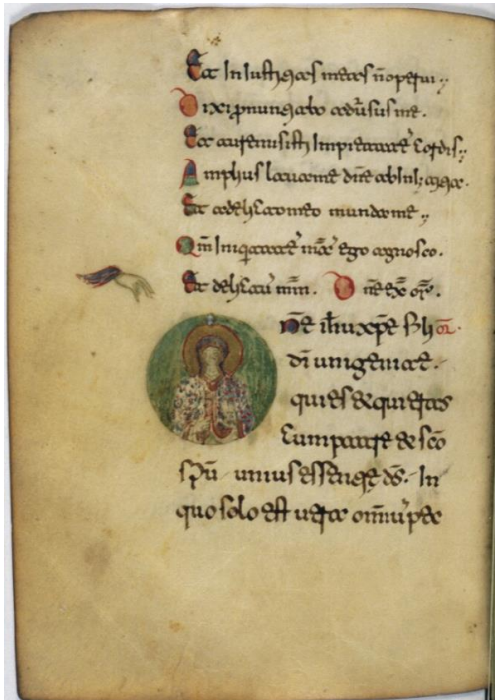 Et Iniustitias meas n̄ operui
Dixi pronuntiabo adūsus me.
Et tu remisisti Impietatē cordis
Amplius laua me dn̄e ab
Et a delicto meo munda me
Qm̄ Iniquitatē meā ego agnosco.
Et delictū mm̄. Dn̄e ex̄ or̄.
Dn̄e ih̄u xp̄e or̄.
dī unigenite.
qui es & qui eras
cum patre & sc̄o
sp̄u unius essentie ds̄. In
quo solo est uera omniū pec